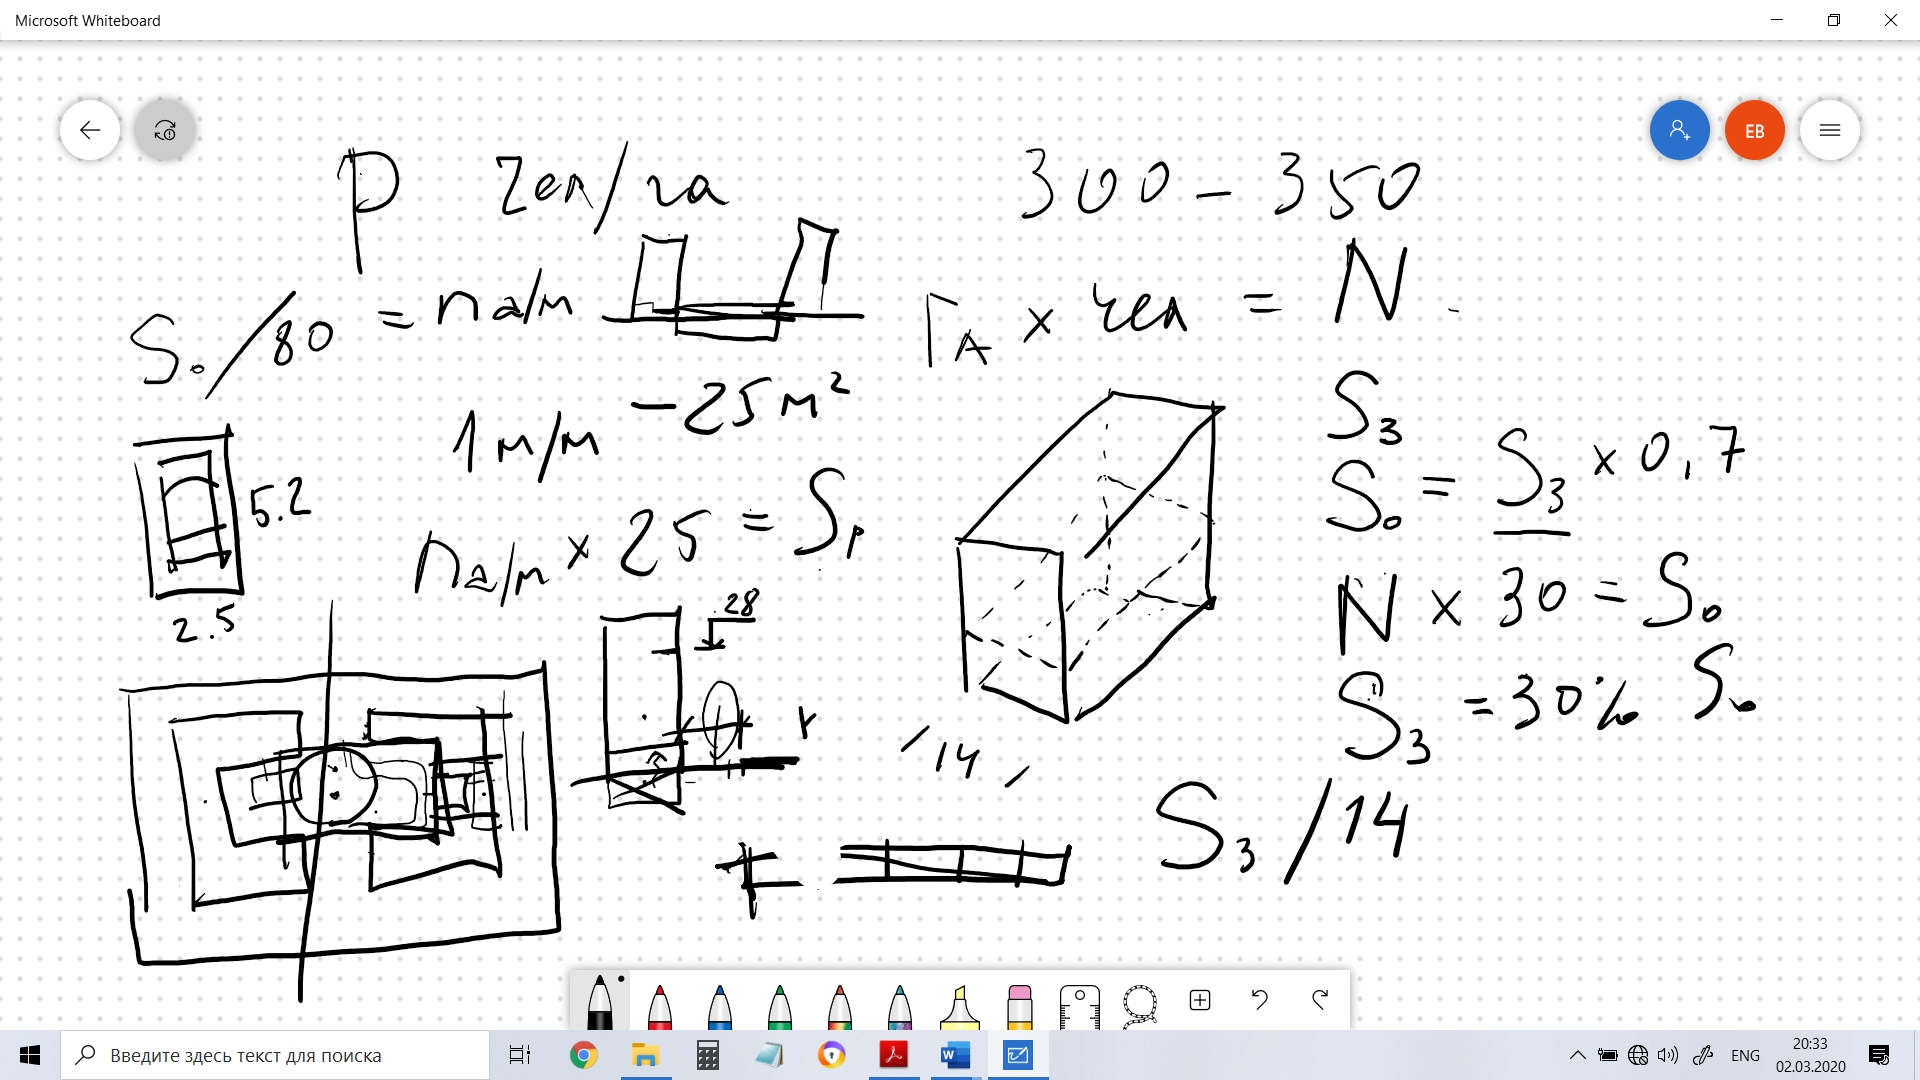 Microsoft Whiteboard
EB
P чел/га
300 - 350
S₀/80 = па/м
ГА × чел = N
1 м/м - 25 м²
S₃
S₀ = S₃ × 0,7
5.2
2.5
па/м × 25 = Sр
N × 30 = S₀
28
S₃ = 30% S₀
14
S₃/14
Введите здесь текст для поиска
ENG
20:33
02.03.2020